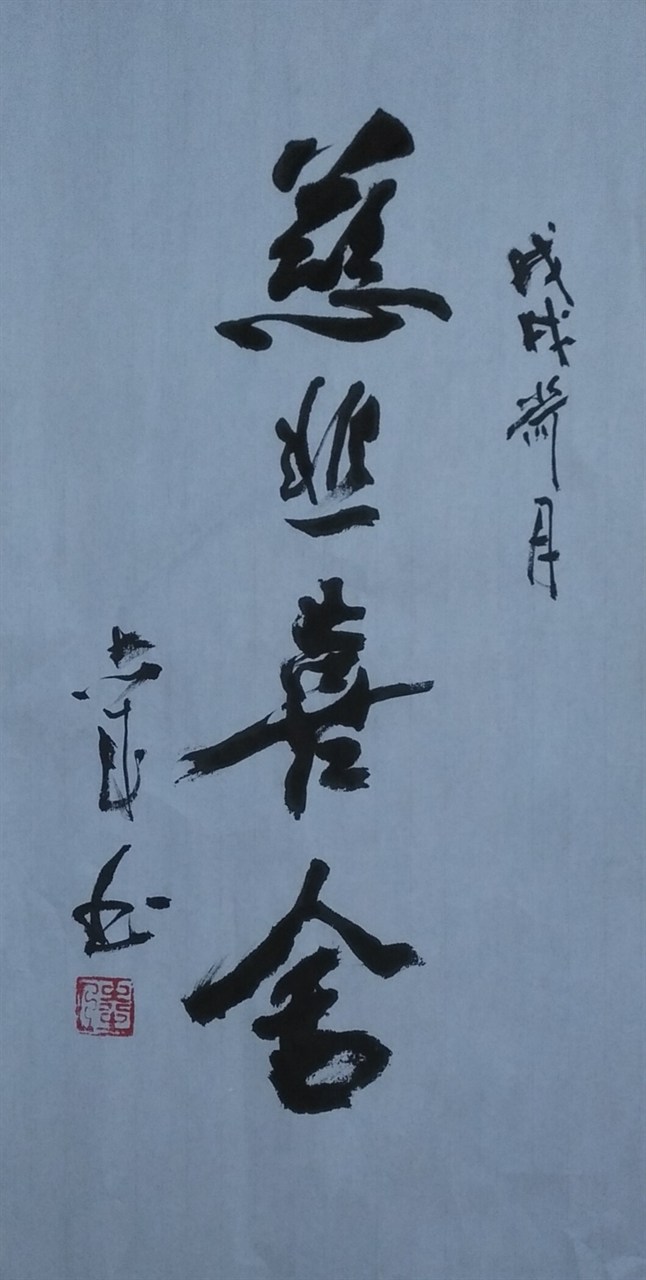 戊戌荷月
慈悲喜舍
书